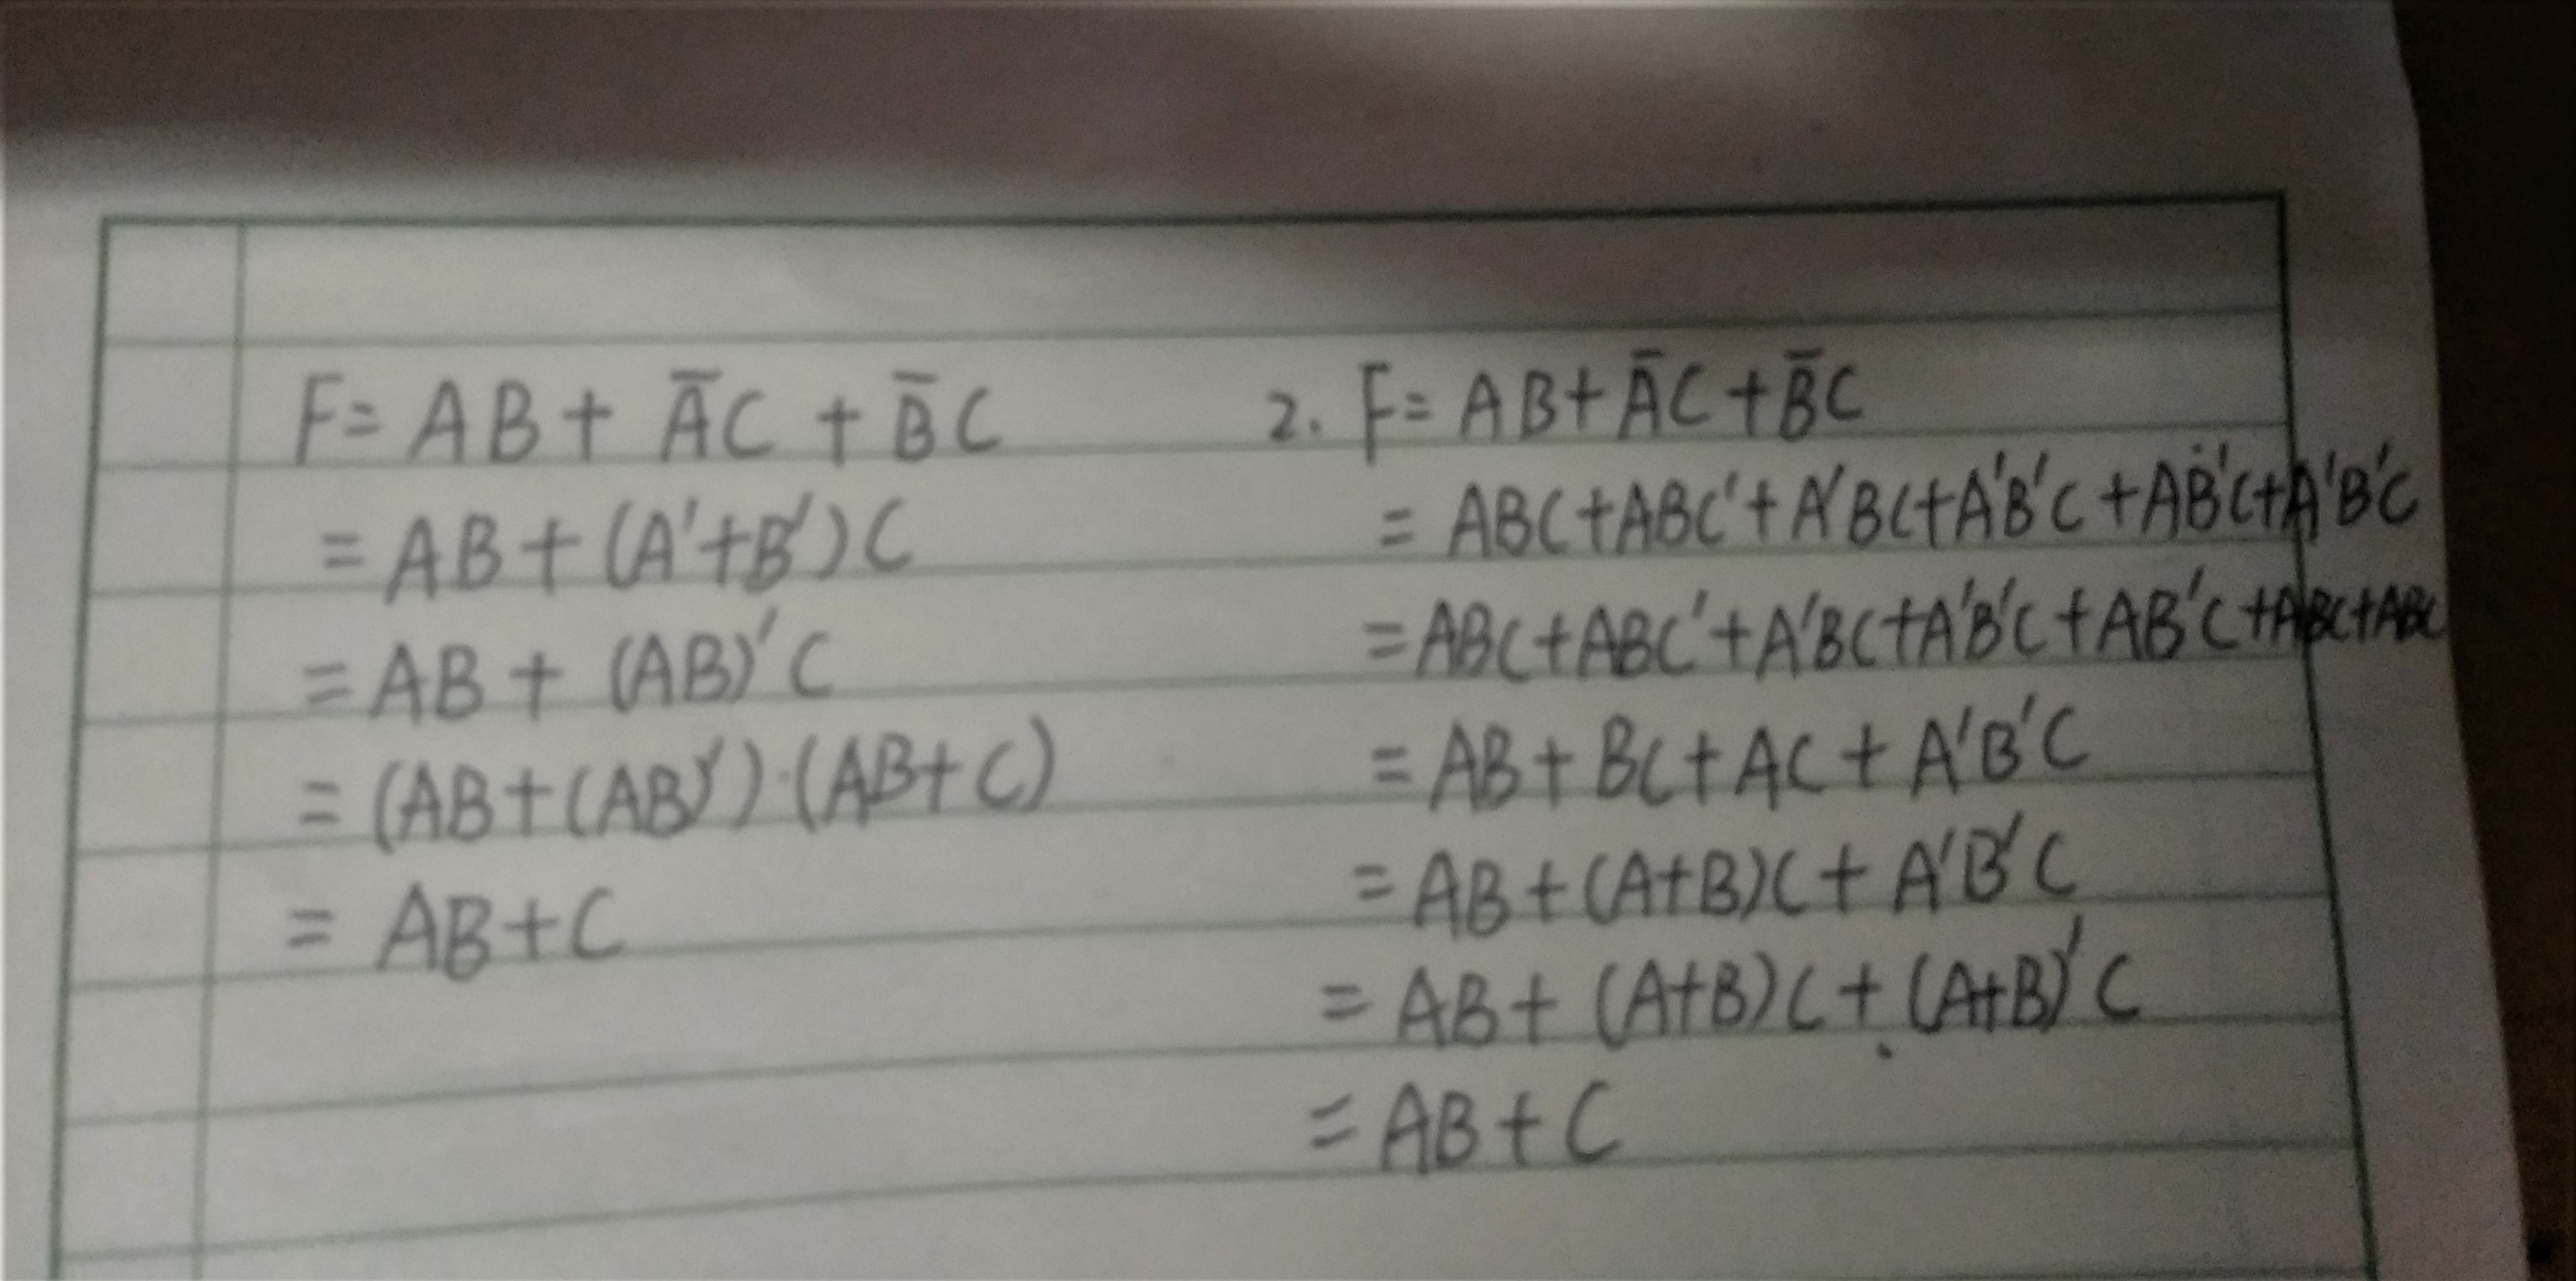 F = AB + A̅C + B̅C
= AB + (A'+B')C
= AB + (AB)'C
= (AB+(AB)')·(AB+C)
= AB+C
2. F = AB+A̅C+B̅C
= ABC+ABC'+A'BC+A'B'C+AB'C+A'B'C
= ABC+ABC'+A'BC+A'B'C+AB'C+ABC+ABC
= AB+BC+AC+A'B'C
= AB+(A+B)C+A'B'C
= AB+(A+B)C+(A+B)'C
= AB+C